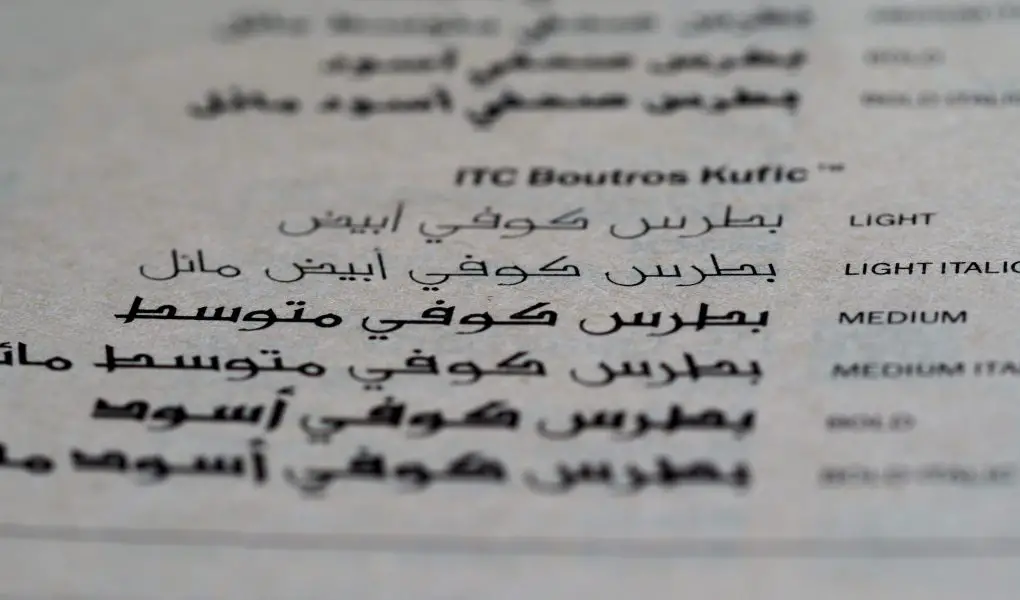 BOLD بطرس صحفي أسود
BOLD ITALI بطرس صحفي أسود مائل
ITC Boutros Kufic™
LIGHT بطرس كوفي أبيض
LIGHT ITALIC بطرس كوفي أبيض مائل
MEDIUM بطرس كوفي متوسط
MEDIUM ITA بطرس كوفي متوسط مائ
BOLD بطرس كوفي أسود
BOLD ITALIC بطرس كوفي أسود ما